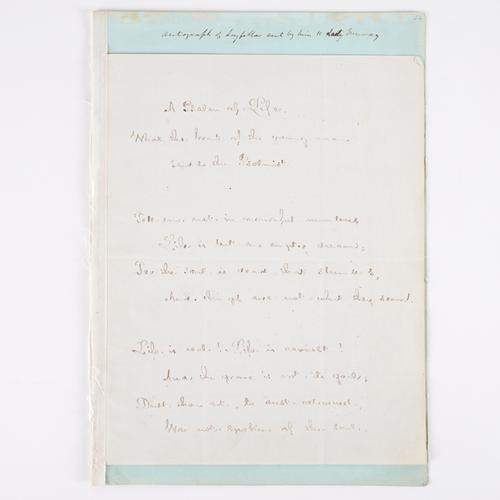 Autograph of Longfellow sent by him to Lady
A Psalm of Life.
What the heart of the young man
said to the Psalmist
Tell me not in mournful numbers
Life is but an empty dream;
For the soul is dead that slumbers,
And things are not what they seem!
Life is real! Life is earnest!
And the grave is not its goal;
Dust thou art, to dust returnest,
Was not spoken of the soul.